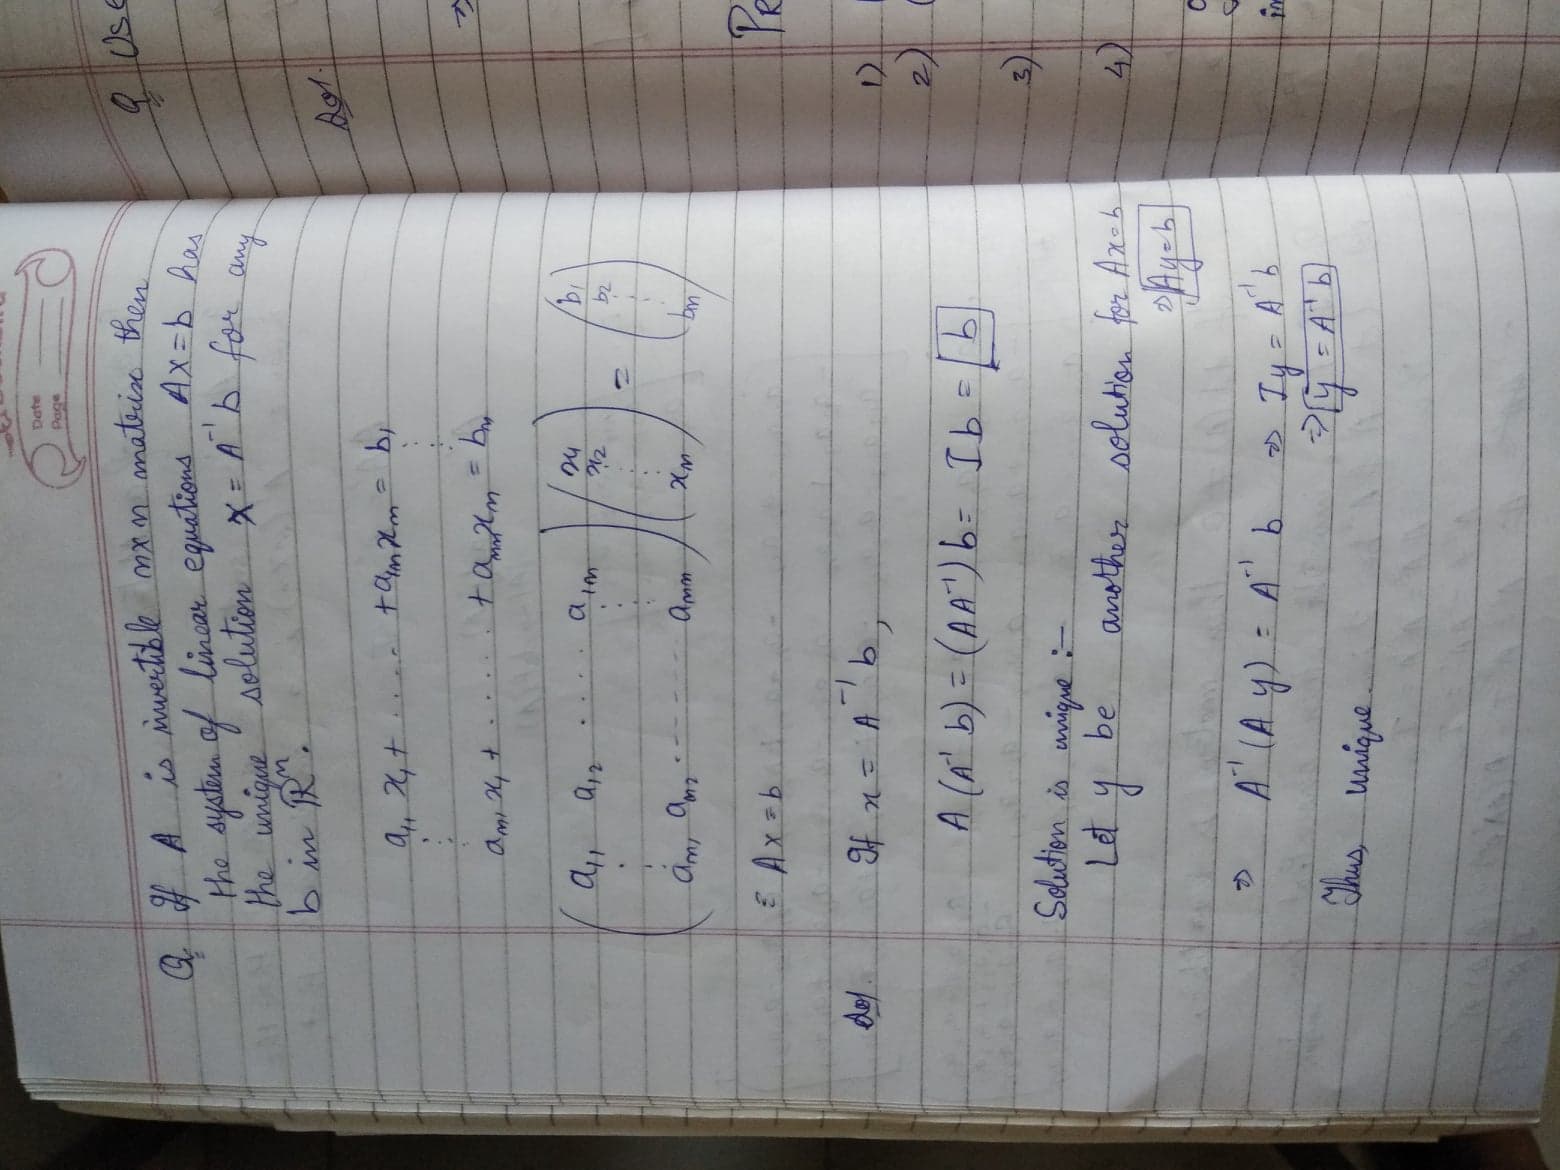 Date
Page
Q If A is invertible nxn matrix then
the system of linear equations Ax=b has
the unique solution x = A⁻¹b for any
b in ℝⁿ.
a₁₁x₁+ ..... +a₁ₙxₙ = b₁
⋮ ⋮
aₙ₁x₁+ ..... +aₙₙxₙ = bₙ
(a₁₁ a₁₂ .... a₁ₙ) (x₁) = (b₁)
x₂ b₂
⋮ ⋮ ⋮ ⋮
(aₙ₁ aₙ₂ ..... aₙₙ) (xₙ) (bₙ)
≡ Ax=b
Sol. If x = A⁻¹b,
A(A⁻¹b)=(AA⁻¹)b= Ib = b
Solution is unique :-
Let y be another solution for Ax=b
⇒ Ay=b
⇒ A⁻¹(Ay) = A⁻¹b ⇒ Iy = A⁻¹b
⇒ y = A⁻¹b
Thus, unique.
Q Use
Sol.
⇒
PR
1)
2)
3)
4)